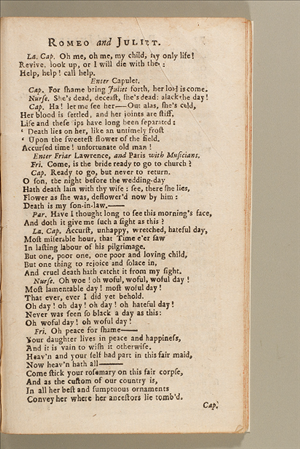 ROMEO and JULIET.
La. Cap. Oh me, oh me, my child, my only life!
Revive, look up, or I will die with thee:
Help, help! call help.
Enter Capulet.
Cap. For shame bring Juliet forth, her lord is come.
Nurse. She's dead, deceaſt, ſhe's dead: alack the day!
Cap. Ha! let me ſee her—Out alas, ſhe's cold,
Her blood is ſettled, and her joints are ſtiff,
Life and theſe lips have long been ſeparated:
‘ Death lies on her, like an untimely froſt
‘ Upon the ſweeteſt flower of the field.
Accurſed time! unfortunate old man!
Enter Friar Lawrence, and Paris with Muſicians.
Fri. Come, is the bride ready to go to church?
Cap. Ready to go, but never to return.
O ſon, the night before the wedding-day
Hath death lain with thy wife: ſee, there ſhe lies,
Flower as ſhe was, deflower'd now by him:
Death is my ſon-in-law.—
Par. Have I thought long to ſee this morning's face,
And doth it give me ſuch a ſight as this?
La. Cap. Accurſt, unhappy, wretched, hateful day,
Moſt miſerable hour, that Time e'er ſaw
In laſting labour of his pilgrimage,
But one, poor one, one poor and loving child,
But one thing to rejoice and ſolace in,
And cruel death hath catcht it from my ſight.
Nurſe. Oh woe! oh woful, woful, woful day!
Moſt lamentable day! moſt woful day!
That ever, ever I did yet behold.
Oh day! oh day! oh day! oh hateful day!
Never was ſeen ſo black a day as this:
Oh woful day! oh woful day!
Fri. Oh peace for ſhame—
Your daughter lives in peace and happineſs,
And it is vain to wiſh it otherwiſe.
Heav'n and your ſelf had part in this fair maid,
Now heav'n hath all—
Come ſtick your roſemary on this fair corpſe,
And as the cuſtom of our country is,
In all her beſt and ſumptuous ornaments
Convey her where her anceſtors lie tomb'd.
Cap.